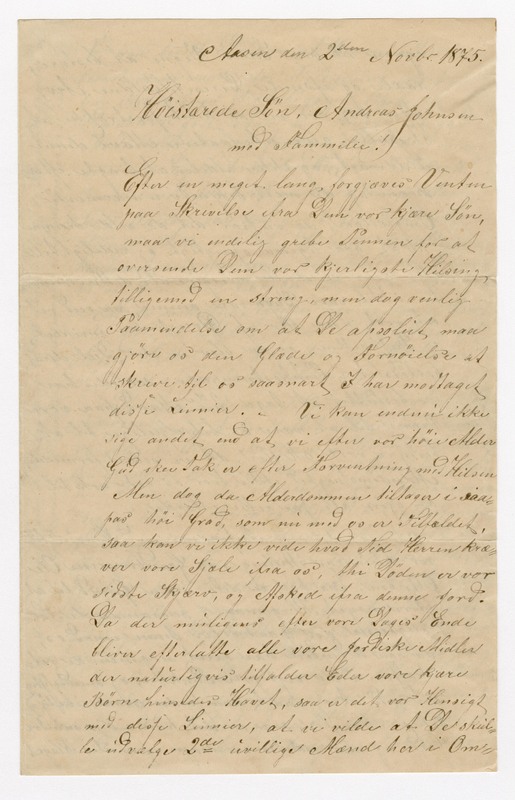 Aasen den 2den Novbr 1875.
Höistærede Sön, Andreas Johnsen
med Fammilie!
Efter en meget lang, forgjæves Venten
paa Skrivelse ifra Dem vor kjære Sön,
maa vi endelig gribe Pennen for at
oversende Dem vor kjerligste Hilsing
tilligemed en streng, men dog venlig
Paamindelse om at De apsolut maa
gjöre os den Glæde og Fornöielse at
skrive til os saasnart I har modtaget
disse Linnier. - Vi kan endnu ikke
sige andet end at vi efter vor höie Alder
Gud ske Tak er efter Forventning med Hilsen
Men dog da Alderdommen tiltager i saa-
pas höi Grad, som nu med os er Tilfældet,
saa kan vi ikke vide hvad Tid Herren kræ-
ver vore Sjæle ifra os, thi Döden er vor
sidste Skjærv, og Afsked ifra denne Jord.
Da der muligens efter vore Dages Ende
bliver efterlatte alle vore jordiske Midler
der naturligvis tilfalder Eder vore kjære
Börn hinsides Havet, saa er det vor Hensigt
med disse Linnier, at vi vilde at De skul-
le udvælge 2de uvillige Mænd her i Om-